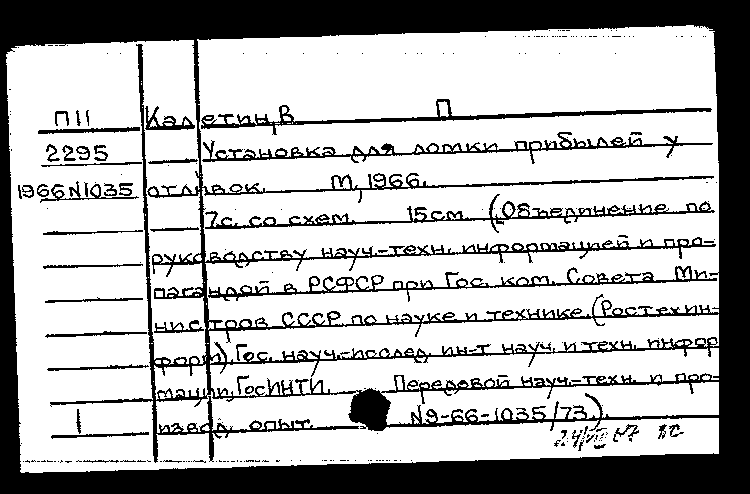 П11 Калетин, В П
2295 Установка для ломки прибылей у
1966 N1035 отливок. М, 1966.
7с. со схем. 15см (Объединение по
руководству науч.-техн. информацией и про-
пагандой в РСФСР при Гос. ком. Совета Ми-
нистров СССР по науке и технике. (Ростехин-
форм). Гос. науч.-исслед. ин-т науч. и техн. инфор
мации, ГосИНТИ. Передовой науч.-техн. и про-
1 извод. опыт. N9-66-1035/73).